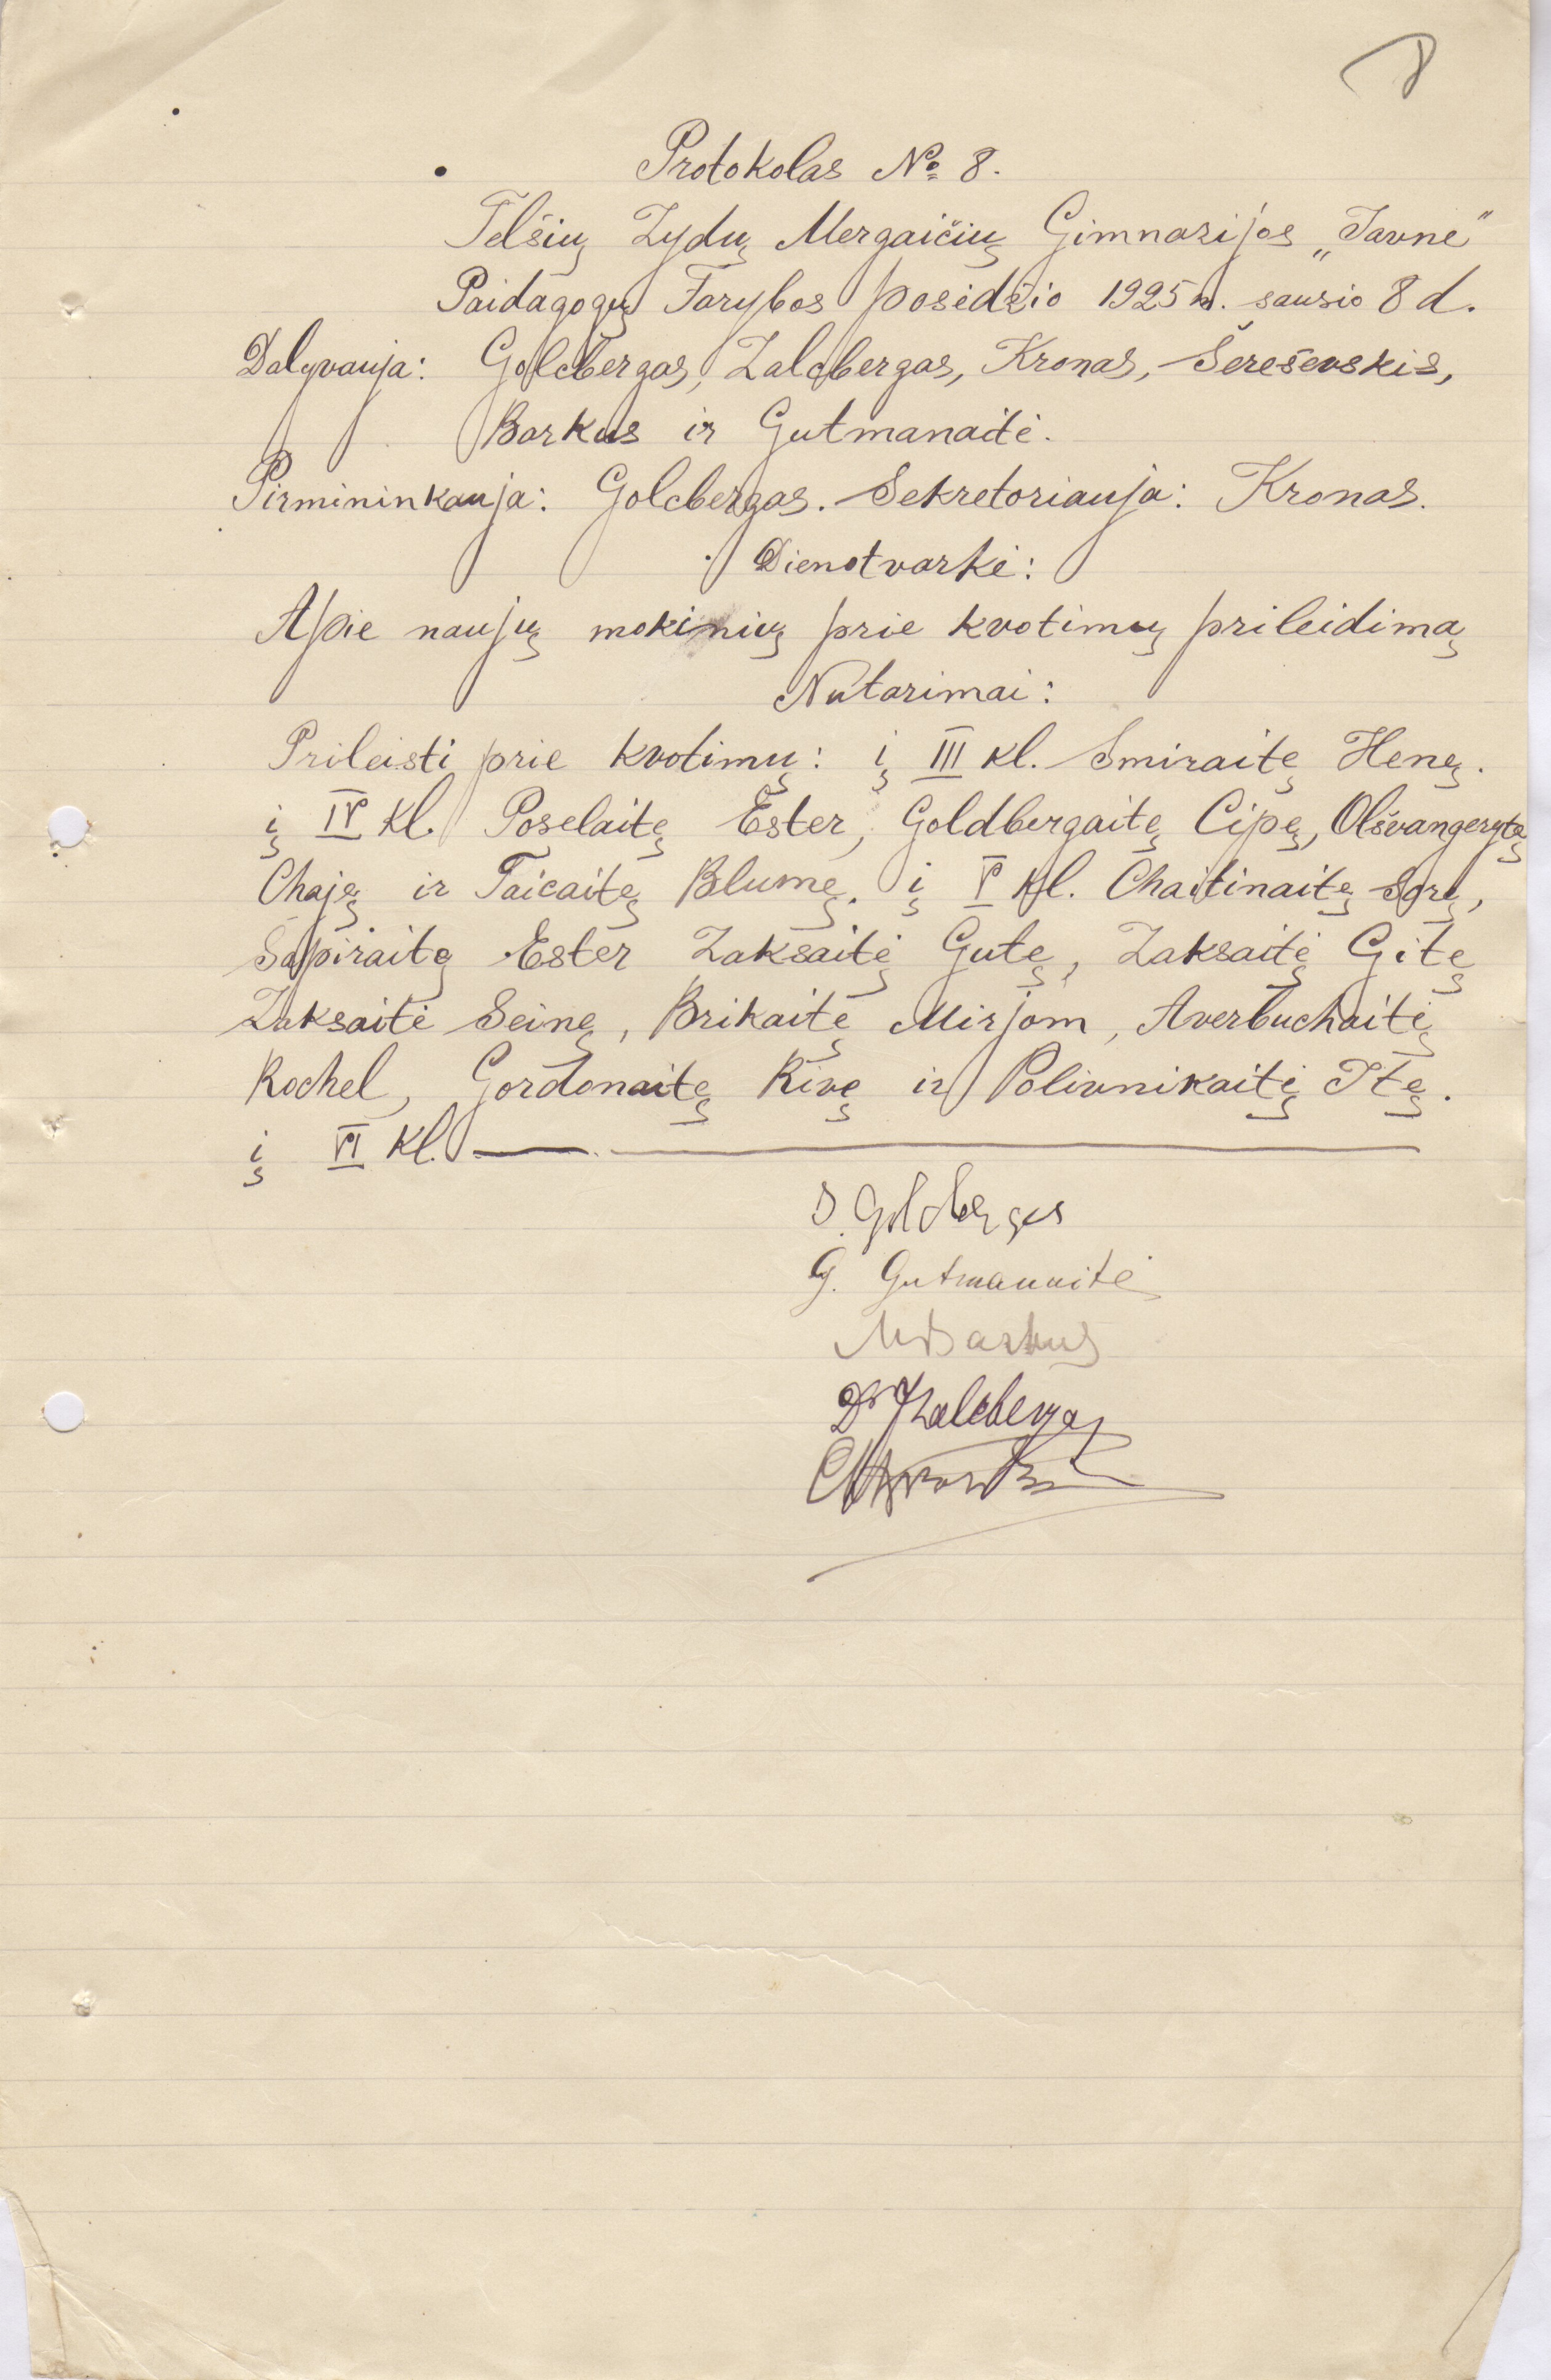 8
Protokolas № 8.
Telšių Zydų Mergaičių Gimnazijos „Javne"
Paidagogų Tarybos posėdžio 1925 m. sausio 8 d.
Dalyvauja: Golcbergas, Zalcbergas, Kronas, Šereševskis,
Barkus ir Gutmanaitė.
Pirmininkauja: Golcbergas. Sekretoriauja: Kronas.
Dienotvarkė:
Apie naujų mokinių prie kvotimų prileidimą
Nutarimai:
Prileisti prie kvotimų: į III kl. Smiraitę Henę.
į IV kl. Poselaitę Ester, Goldbergaitę Cipę, Olšvangerytę
Chaję ir Taicaitę Blumę. į V kl. Chaitinaitę Sorę,
Šapiraitę Ester Zaksaitę Gutę, Zaksaitę Gitę
Zaksaitė Seinę, Brikaitę Mirjam, Averbuchaitę
Rochel, Gordonaitę Rivę ir Polivnikaitę Itę.
į VI kl. —
D. Golcbergas
G. Gutmanaitė
M Barkus
Dr Zalcbergas